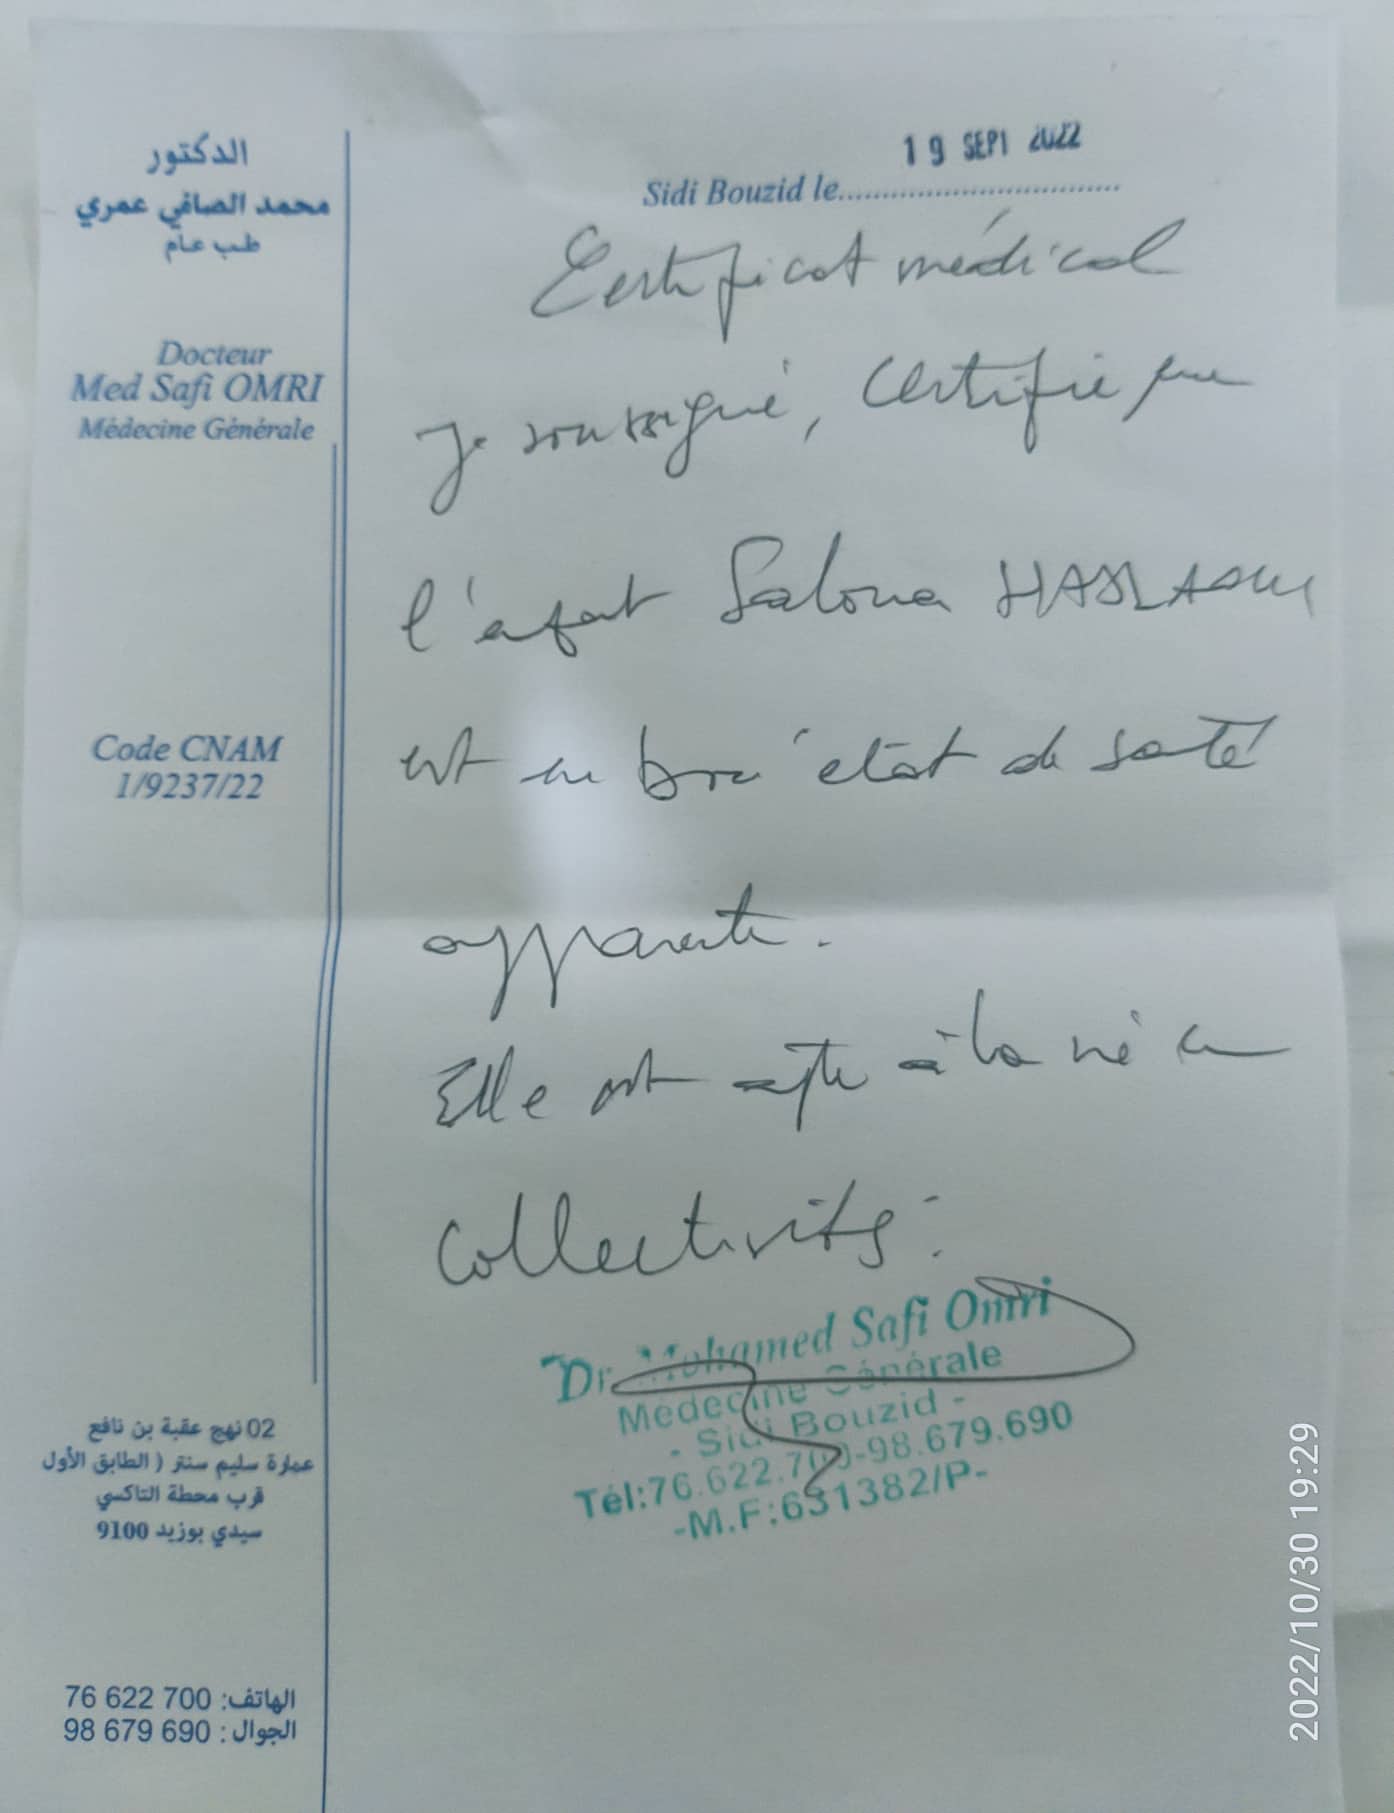 الدكتور
محمد الصافي عمري
طب عام
Docteur
Med Safi OMRI
Médecine Générale
Code CNAM
1/9237/22
02 نهج عقبة بن نافع
عمارة سليم سنتر ( الطابق الأول
قرب محطة التاكسي
سيدي بوزيد 9100
الهاتف: 76 622 700
الجوال : 98 679 690
19 SEPT 2022
Sidi Bouzid le................................
Certificat médical
Je soussigné, certifie que
l'enfant Saloua
est en bon état de santé
apparente.
Elle est apte à la vie en
collectivité.
Dr Mohamed Safi Omri
Médecine Générale
- Sidi Bouzid -
Tél:76.622.700-98.679.690
-M.F:631382/P-
2022/10/30 19:29